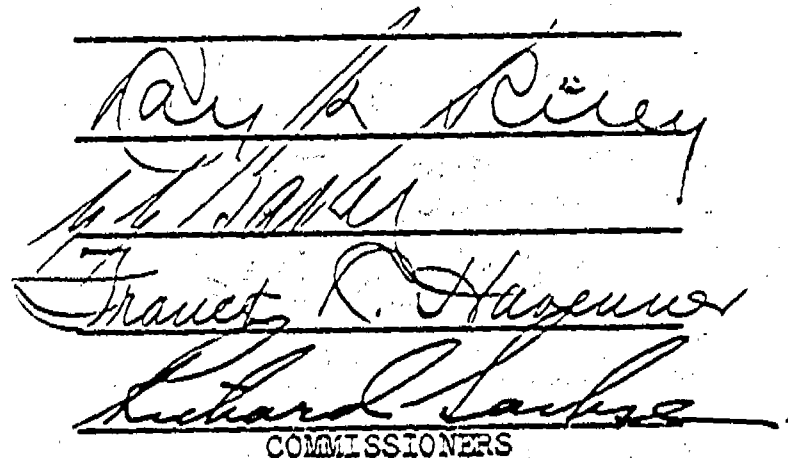 Ray L. Riley
C. C. Baker
Francis R. Havenner
Richard Sachse
COMMISSIONERS